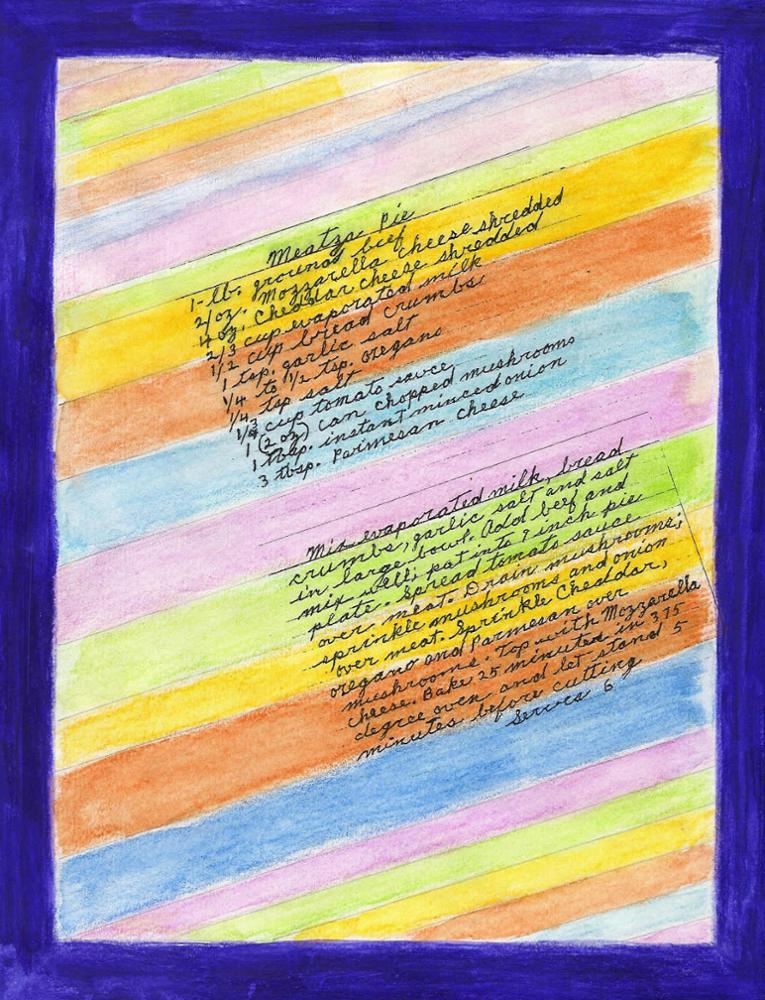 Meatza Pie
1-lb. ground beef
2/oz. Mozzarella cheese shredded
4 oz. Cheddar cheese shredded
2/3 cup evaporated milk
1/2 cup bread crumbs
1 tsp. garlic salt
1/4 to 1/2 tsp. oregano
1/4 tsp salt
cup tomato sauce
1 (2 oz) can chopped mushrooms
1 tbsp. instant minced onion
3 tbsp. Parmesan cheese
Mix evaporated milk, bread
crumbs, garlic salt and salt
in large bowl. Add beef and
mix well; pat into 9 inch pie
plate. Spread tomato sauce
over meat. Drain mushrooms;
sprinkle mushrooms and onion
over meat. Sprinkle Cheddar,
oregano and Parmesan over
mushrooms. Top with Mozzarella
cheese. Bake 25 minutes in 375
degree oven and let stand 5
minutes before cutting
Serves 6